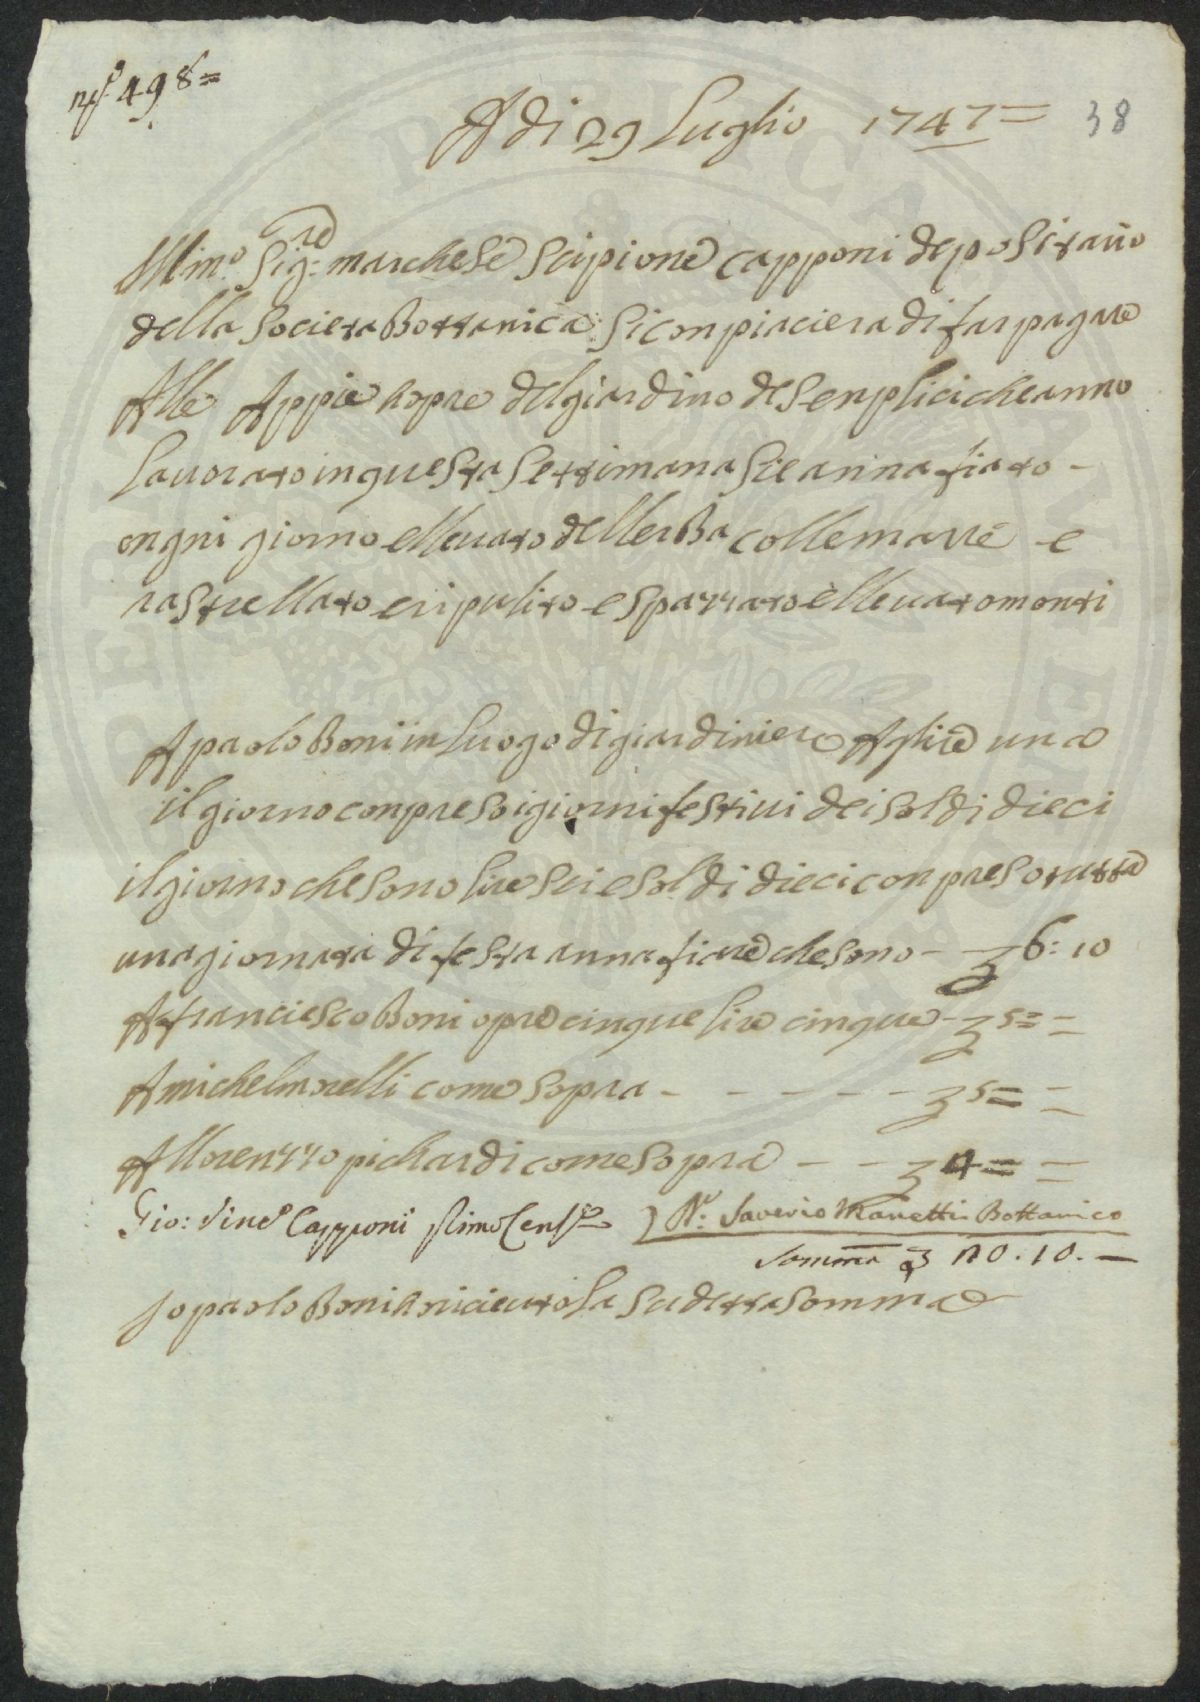 n.º 498=
A di 29 Luglio 1747= 38
Illmo. Sig.re marchese Scipione capponi depositario
della Societa Bottanica Si conpiaciera di far pagare
Alle Appie hopre del giardino de Senplici che anno
lauorato in questa Settimana Sie anna fiato -
ongni giorno elleuato dellerBa colle marre e
rastrellato eripulito e spazzato elleuato monti
A paolo Boni in Luogo di giardiniero A lire una
il giorno conpreso i giorni festiui dei soldi dieci
il giorno che sono lire sei e soldi dieci conpreso tutta
una giornata di festa anna fiare che sono - 6: 10
A franciesco Boni opre cinque lire cinque - 5= =
A michel morelli come sopra - - - - - 5= =
A llorenzzo pichardi come sopra - - 4= =
Gio: Vinc.º Capponi Primo Cens.re
Saverio Manetti Bottanico
Somma 20. 10. -
Jo paolo Boni ho riceuto la Sudetta somma